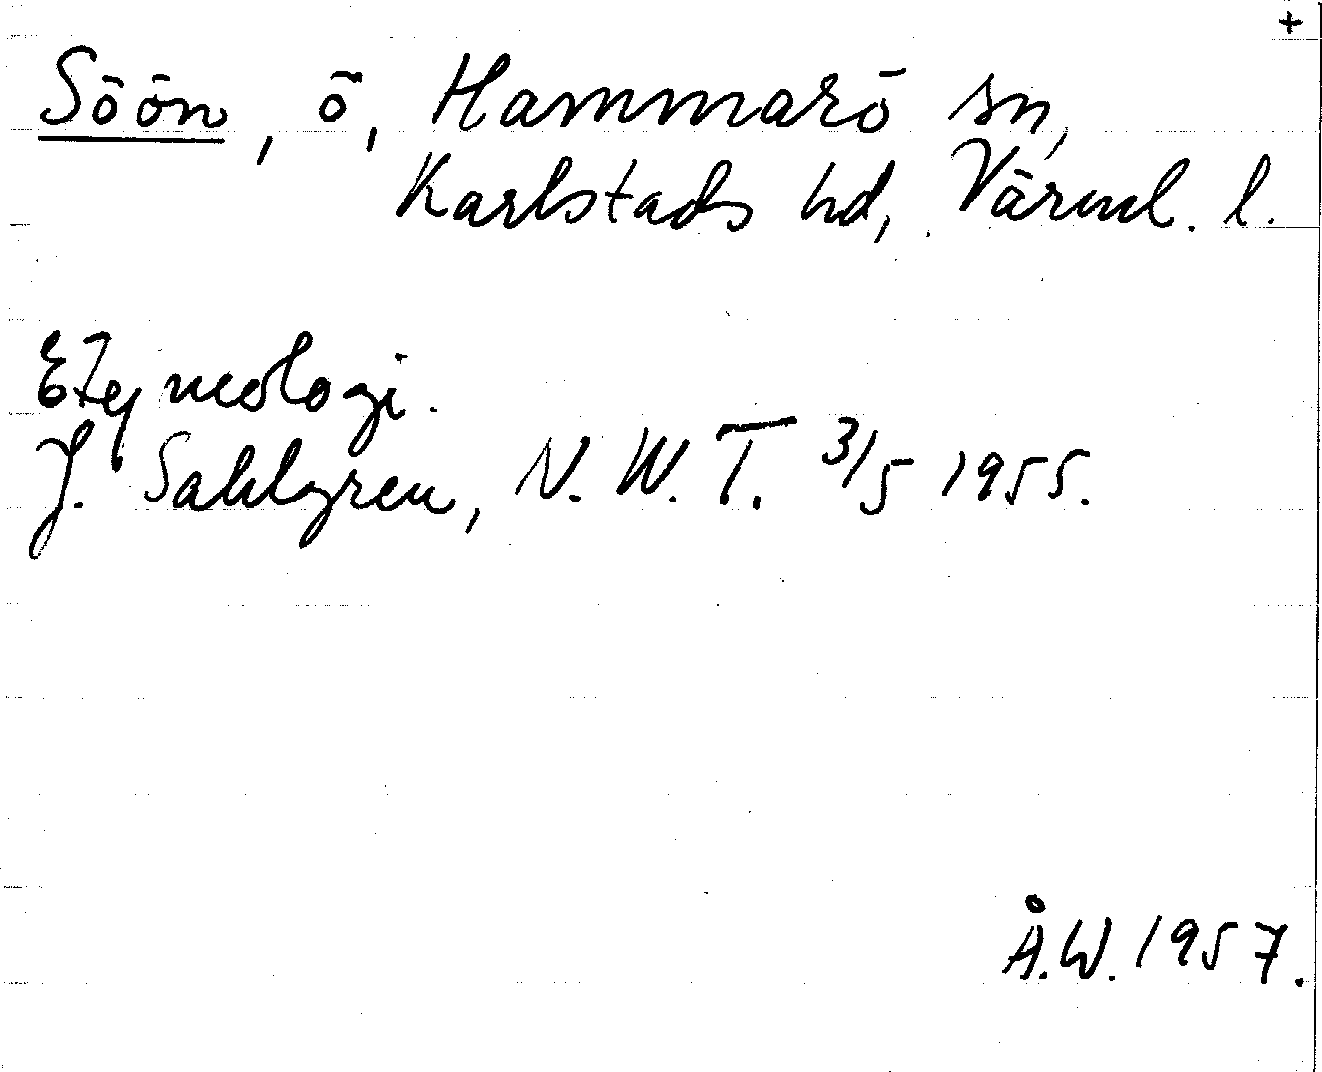 +
Söön, ö, Hammarö sn,
Karlstads hd, Värml. l.
Etymologi.
J. Sahlgren, N.W.T. 3/5 1955.
Å.W. 1957.